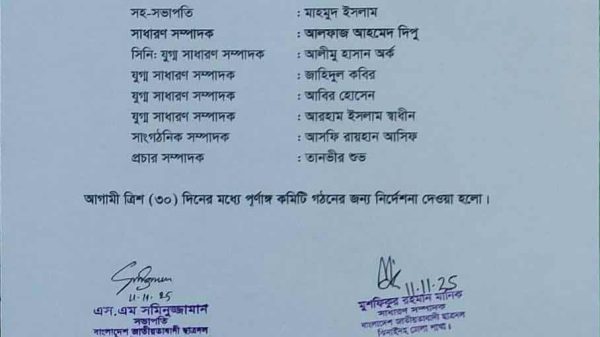 সহ-সভাপতি : মাহমুদ ইসলাম
সাধারণ সম্পাদক : আলফাজ আহমেদ দিপু
সিনি: যুগ্ম সাধারণ সম্পাদক : আলীমু হাসান অর্ক
যুগ্ম সাধারণ সম্পাদক : জাহিদুল কবির
যুগ্ম সাধারণ সম্পাদক : আবির হোসেন
যুগ্ম সাধারণ সম্পাদক : আরহাম ইসলাম স্বাধীন
সাংগঠনিক সম্পাদক : আসফি রায়হান আসিফ
প্রচার সম্পাদক : তানভীর শুভ
আগামী ত্রিশ (৩০) দিনের মধ্যে পূর্ণাঙ্গ কমিটি গঠনের জন্য নির্দেশনা দেওয়া হলো।
11.11.25
এস.এম সমিনুজ্জামান
সভাপতি
বাংলাদেশ জাতীয়তাবাদী ছাত্রদল
11.11.25
মুশফিকুর রহমান মানিক
সাধারণ সম্পাদক
বাংলাদেশ জাতীয়তাবাদী ছাত্রদল
ঝিনাইদহ জেলা শাখা।